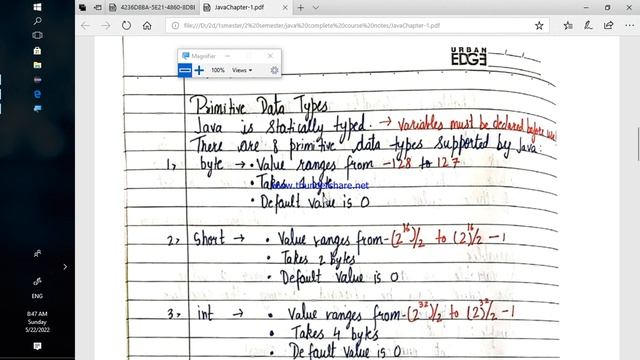 4236D8BA-5E21-4860-8DB
JavaChapter-1.pdf
file:///D:/2d/1smaster/2%20semester/java%20complete%20course%20notes/JavaChapter-1.pdf
Magnifier
100%
Views
URBAN
EDGE
Primitive Data Types
Java is statically typed. → variables must be declared before use
There are 8 primitive data types supported by Java:
1, byte → • Value ranges from -128 to 127
• Takes 1 byte
www.thundershare.net
• Default value is 0
2, short → • Value ranges from -(2^16)/2 to (2)^16/2 - 1
• Takes 2 bytes
• Default value is 0
3, int → • Value ranges from -(2^32)/2 to (2)^32/2 - 1
• Takes 4 bytes
• Default value is 0
ENG
8:47 AM
Sunday
5/22/2022